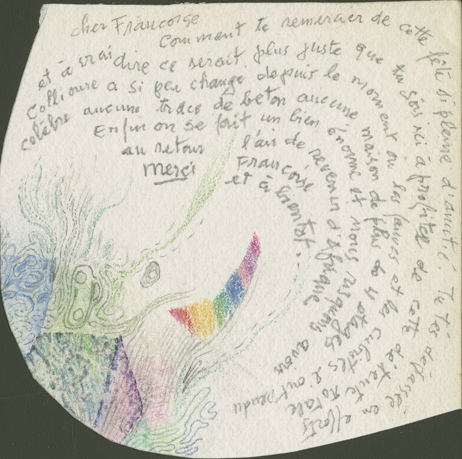 cher Francoise
Comment te remercier de cette fête si pleine d'amitié. Tu t'es dépassée en efforts
et à vrai dire ce serait plus juste que tu sois ici à profiter de cette détente totale
Collioure a si peu changé depuis le moment ou les fauves et les cubistes l'ont rendu
celèbre aucune trace de beton aucune maison de plus de 4 étages
Enfin on se fait un bien énorme et nous risquons avoir
au retour l'air de revenir d'afrique
Merci Francoise
et à bientot.